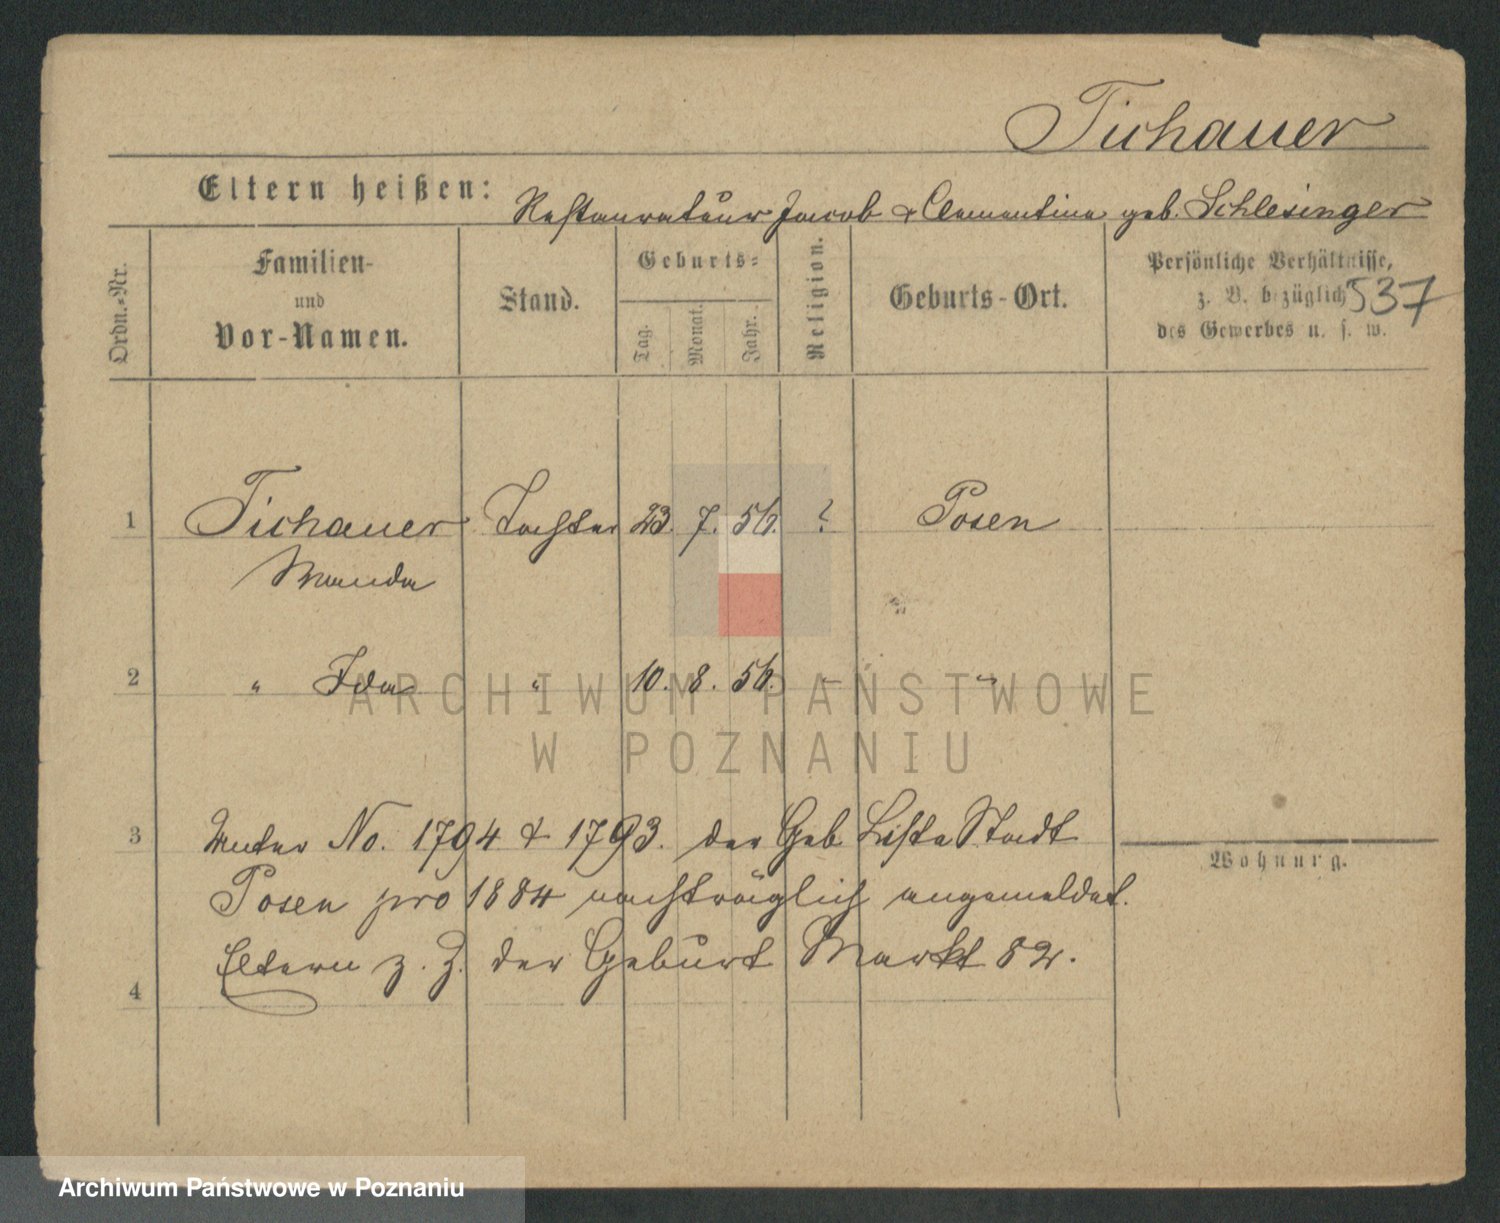 Tichauer
Eltern heißen: Restaurateur Jacob & Clementine geb. Schlesinger
Ordn.-Nr.
Familien-
und
Vor-Namen.
Stand.
Geburts-
Tag.
Monat.
Jahr.
Religion.
Geburts-Ort.
Persönliche Verhältnisse,
z. B. bezüglich
des Gewerbes u. s. w.
537
1 Tichauer Tochter 23. 7. 56. ? Posen
Wanda
2 " Ida " 10. 8. 56. - "
ARCHIWUM PAŃSTWOWE
W POZNANIU
3 Unter No. 1794 & 1793. der Geb Liste Stadt
Wohnung.
Posen pro 1884 nachträglich angemeldet.
Eltern z. Z. der Geburt Markt 82.
4
Archiwum Państwowe w Poznaniu